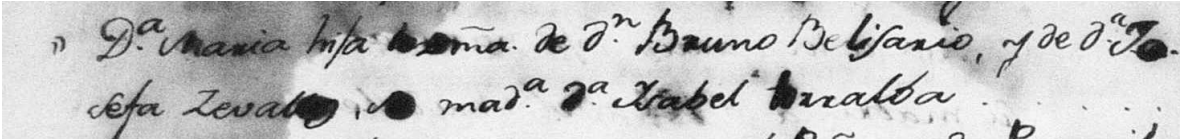 " D.ª Maria hija lexma. de d.ⁿ Bruno Belisario, y de d.ª Jo.
sefa Zevallos, mad.ª d.ª Isabel torralba . . . . .